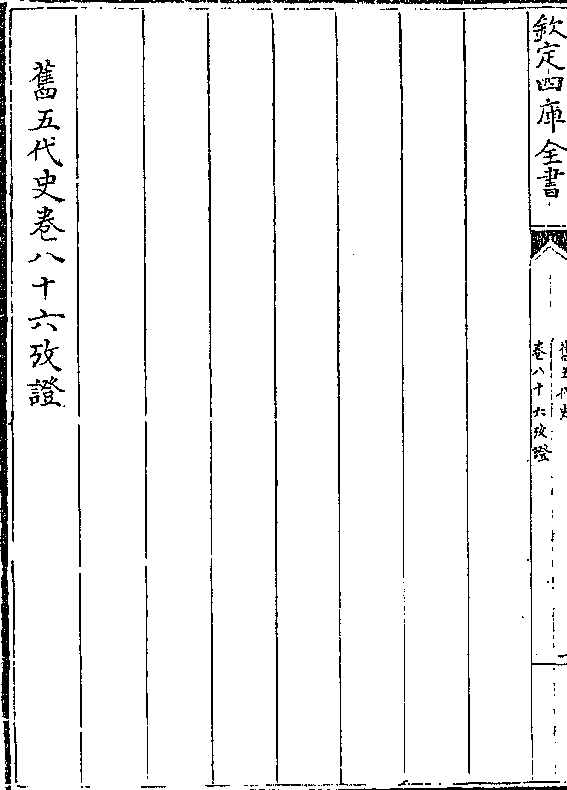 欽定四庫全書
舊五代史
卷八十六攷證
舊五代史卷八十六攷證